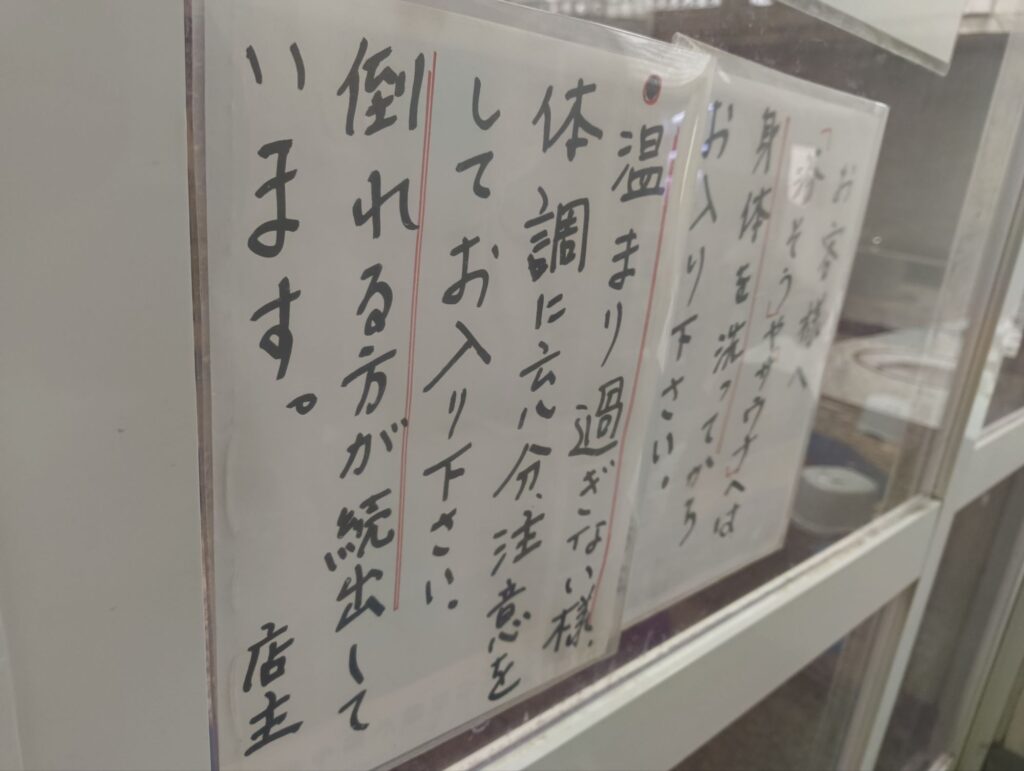 お客様へ
「浴そう」やサウナ」へは
身体を洗ってから
お入り下さい。
温まり過ぎない様、
体調に充分、注意を
してお入り下さい。
倒れる方が続出して
います。
店主